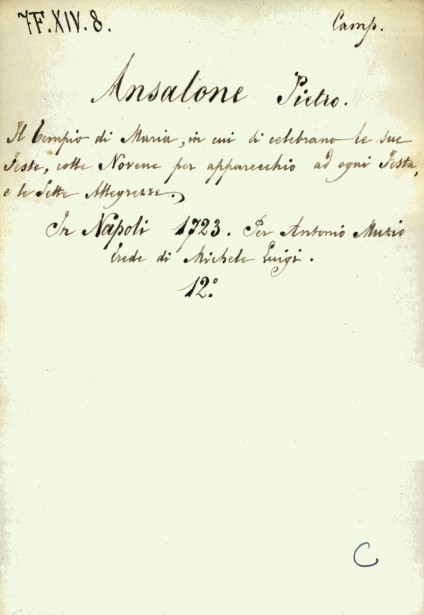 7F.XIV.8.
Camp.
Ansalone Pietro.
Il Tempio di Maria, in cui si celebrano le sue
Feste, colle Novene per apparecchio ad ogni Festa,
e le Sette Allegrezze,
In Napoli 1723. Per Antonio Muzio
Erede di Michele Luigi.
12.º
C